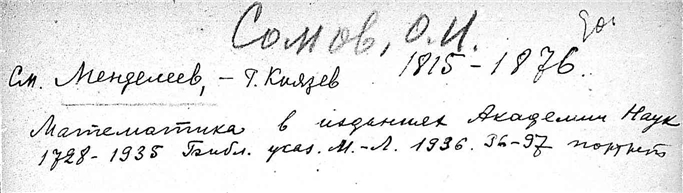 Сомов, О.И.
1815-1876.
См. Менделеев, - Г. Князев
Математика в изданиях Академии Наук
1728-1935 Библ. указ. М.-Л. 1936. 96-97 портрет